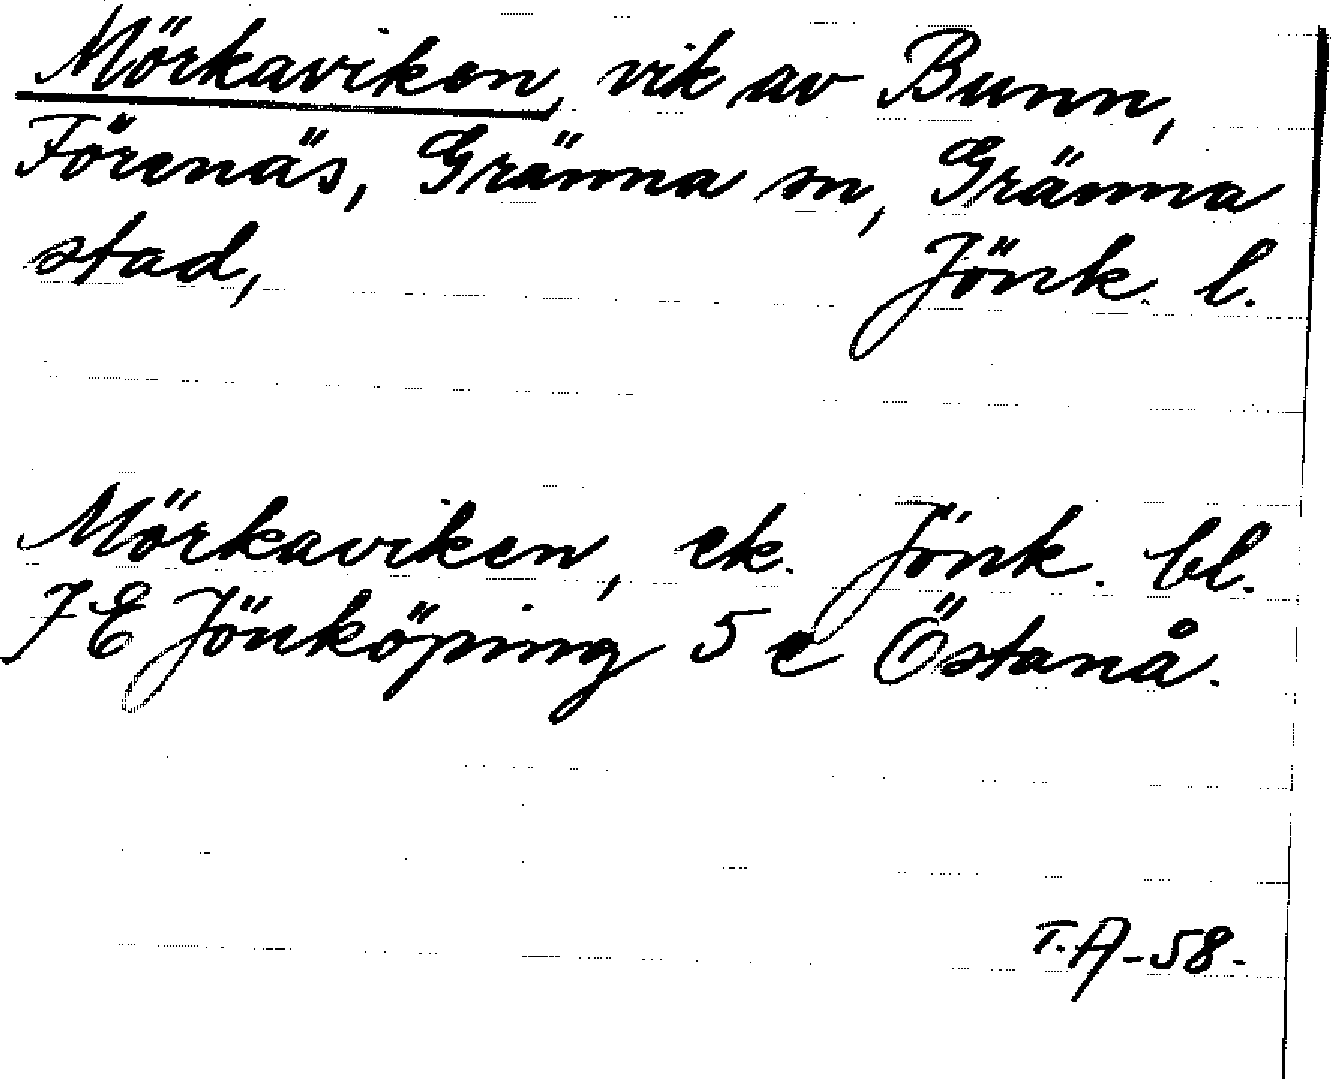 Mörkaviken, vik av Bunn,
Förenäs, Gränna sn, Gränna
stad, Jönk. l.
Mörkaviken, ek. Jönk. bl.
7 E Jönköping 5 e Östanå.
T.A-58.